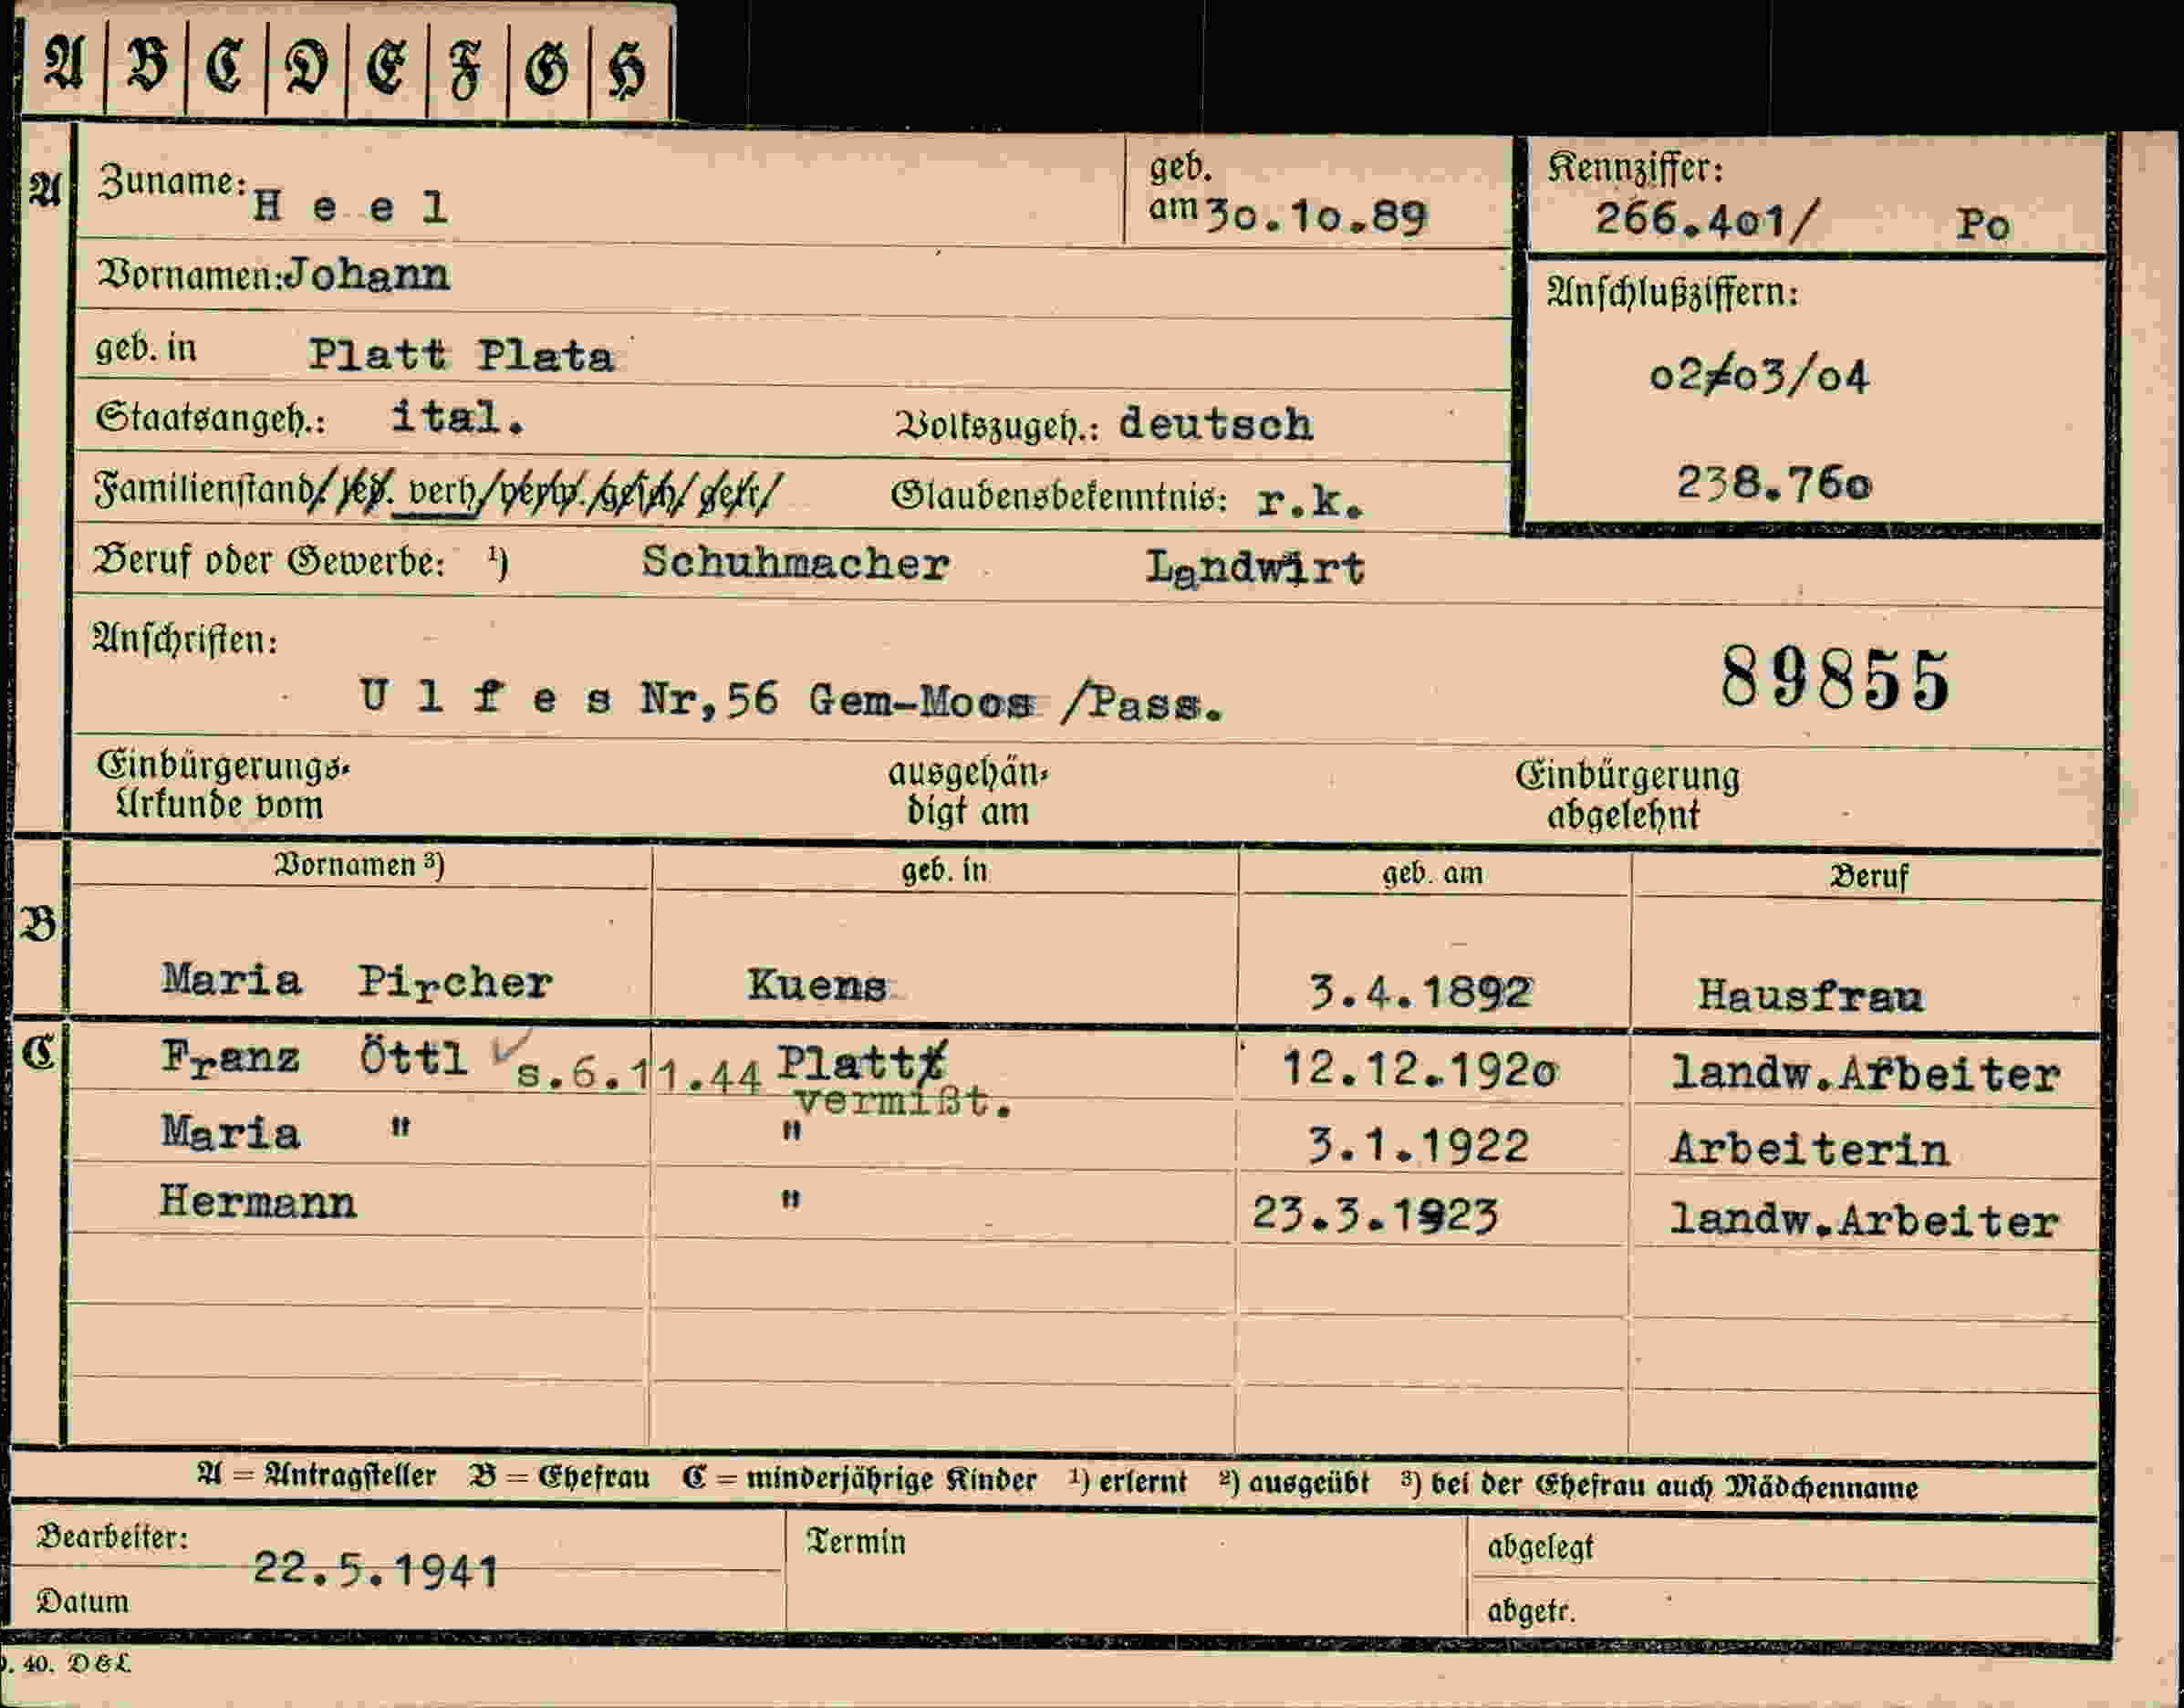 A B C D E F G H
A Zuname: H e e l geb. am 30.10.89 Kennziffer: 266.401/ Po
Vornamen: Johann Anschlußziffern:
geb. in Platt Plata 02/03/04
Staatsangeh.: ital. Volkszugeh.: deutsch
Familienstand/ led. verh/verw./gesch/getr/ Glaubensbekenntnis: r.k. 238.760
Beruf oder Gewerbe: 1) Schuhmacher Landwirt
Anschriften: 89855
U l f e s Nr,56 Gem-Moos /Pass.
Einbürgerungs- ausgehän- Einbürgerung
Urkunde vom digt am abgelehnt
Vornamen 3) geb. in geb. am Beruf
B
Maria Pircher Kuens 3.4.1892 Hausfrau
C Franz Öttl s.6.11.44 Platt 12.12.1920 landw.Arbeiter
vermißt.
Maria " " 3.1.1922 Arbeiterin
Hermann " 23.3.1923 landw.Arbeiter
A = Antragsteller B = Ehefrau C = minderjährige Kinder 1) erlernt 2) ausgeübt 3) bei der Ehefrau auch Mädchenname
Bearbeiter: Termin abgelegt
22.5.1941
Datum abgetr.
40. D&L